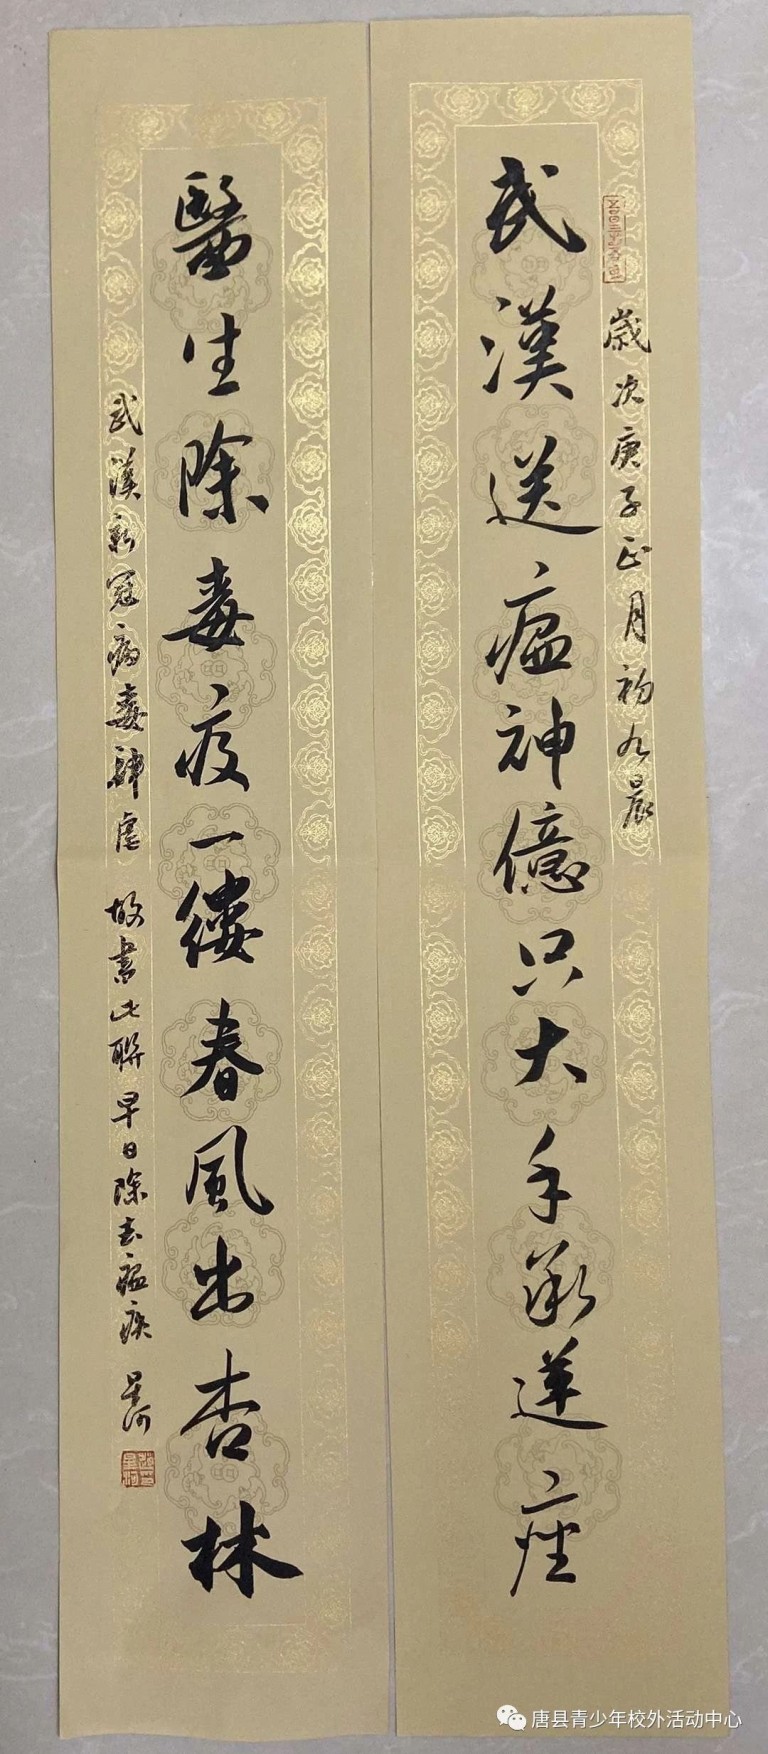 歲次庚子正月初九晨
武漢送瘟神億只大手承蓮座
醫生除毒疫一縷春風出杏林
武漢新冠病毒肆虐 故書此聯 早日除去瘟疾 星河
唐县青少年校外活动中心